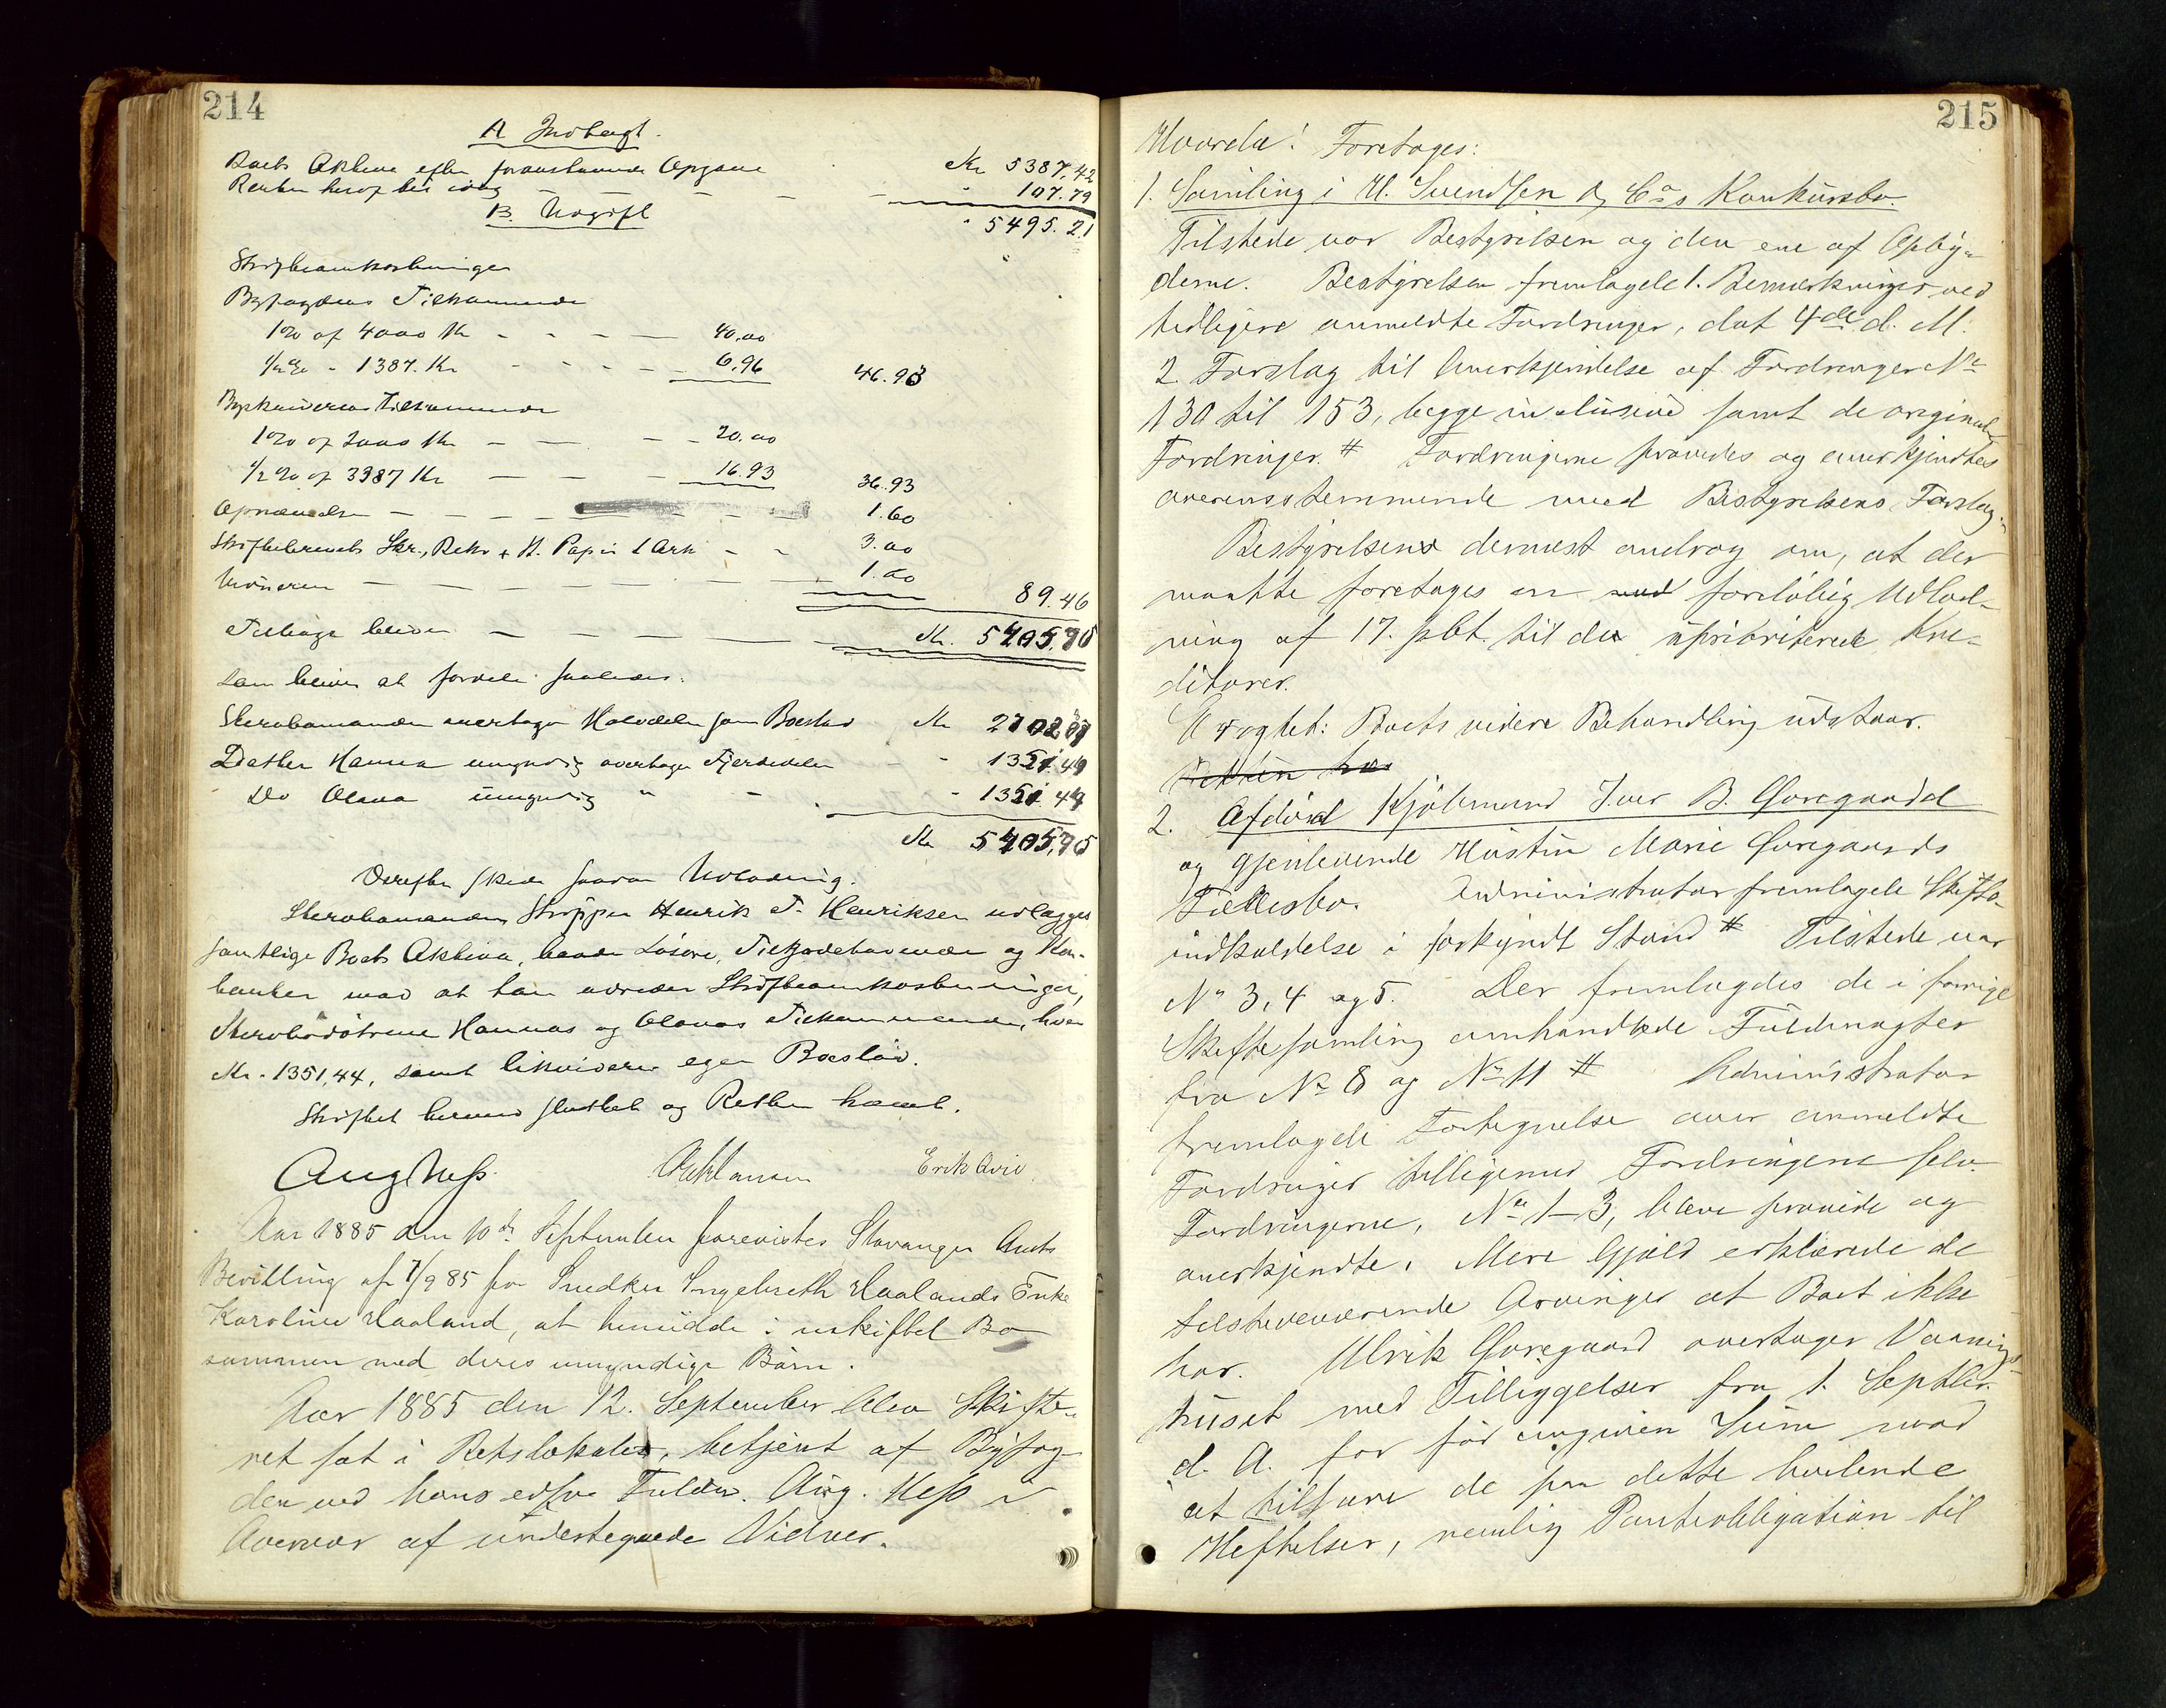 214
A Indtægt.
Boets Aktiva efter foranstaaende Opgave Kr 5387,42
Renter heraf til idag - - - - " 107.79
B. Udgift " 5495.21
Skifteomkostninger
Byfogdens Tilkommende
1 % af 4000 Kr - - - - 40,00
½ % - 1387. Kr - - - - 6,96 46.93
Bykasserens Tilkommende
1 % af 2000 Kr - - - - 20.00
½ % af 3387 Kr - - - 16.93 36.93
Opnævnelse - - - - - - 1.60
Skiftebrevets Skr., Rekv & St. Papir 1 Ark - - 3.00
Vidneren - - - - - 1.00 89.46
Tilbage bliver - - - - Kr. 5405,75
som bliver at fordele saaledes:
Sterbomanden overtager Halvdelen som Boeslod Kr 2702,87
Datter Hanna umyndig overtager Fjerdedelen - - 1351.44
Do Olava umyndig " - - 1351.44
Kr 5405,75
Derefter skede saadan Udlodning:
Sterbomanden Skipper Henrik T. Henriksen udlægges
samtlige Boets Aktiva, baade Løsøre, Tilgodehavender og Kon-
tanter mod at han udreder Skifteomkostninger,
Sterbdøtrene Hannas og Olavas Tilkommende, hver
Kr. 1351,44, samt likviderer egen Boeslod.
Skiftet hermed sluttet og Retten hævet.
Aug Hess. Erik Avio
Aar 1885 den 10de September forevistes Stavanger Amts
Bevilling af 7/9 85 for Snedker Ingebreth Haalands Enke
Karoline Haaland, at hensidde i uskiftet Bo
sammen med deres umyndige Børn.
Aar 1885 den 12. September blev Skifte-
ret sat i Retslokalet, betjent af Byfog-
den ved hans edsv. Fuldm. Aug. Hess i
Overvær af undertegnede Vidner.
215
Hvorda! Foretages:
1. Samling i H. Svendsen & Co.s Konkursbo.
Tilstede var Bestyrelsen og den ene af Opby-
derne. Bestyrelsen fremlagde 1. Bemærkninger ved
tidligere anmeldte Fordringer, dat 4de d. M.
2. Forslag til Anerkjendelse af Fordringer No
130 til 153, begge inclusive samt de originale
Fordringer. # Fordringerne prøvedes og anerkjendtes
overensstemmende med Bestyrelsens Forslag.
Bestyrelsen dernæst androg om, at der
maatte foretages en ud foreløbig Udlod-
ning af 17. pCt. til de uprioriterede Kre-
ditorer.
Eragtet: Boets videre Behandling udstaar.
Retten hæ
2. Afdød Kjøbmand Iver B. Øvregaard
og gjenlevende Hustru Marie Øvregaards
Fællesbo. Administrator fremlagde Skifte-
indkaldelse i forkyndt Stand # Tilstede var
No 3, 4 og 5. Der fremlagdes de i forrige
Skiftesamling omhandlede Fuldmagter
fra No 8 og No 11 # Administrator
fremlagde Fortegnelse over anmeldte
Fordringer tilligemed Fordringerne selv.
Fordringerne, No 1-3, bleve prøvede og
anerkjendte. Mere Gjæld erklærede de
tilstedeværende Arvinger at Boet ikke
har. Ulrik Øvregaard overtager Vaanings-
huset med Tilliggelser fra 1. Septbr.
d. A. for før angiven Sum mod
at tilsvare de paa dette hvilende
Heftelser, nemlig Panteobligation til